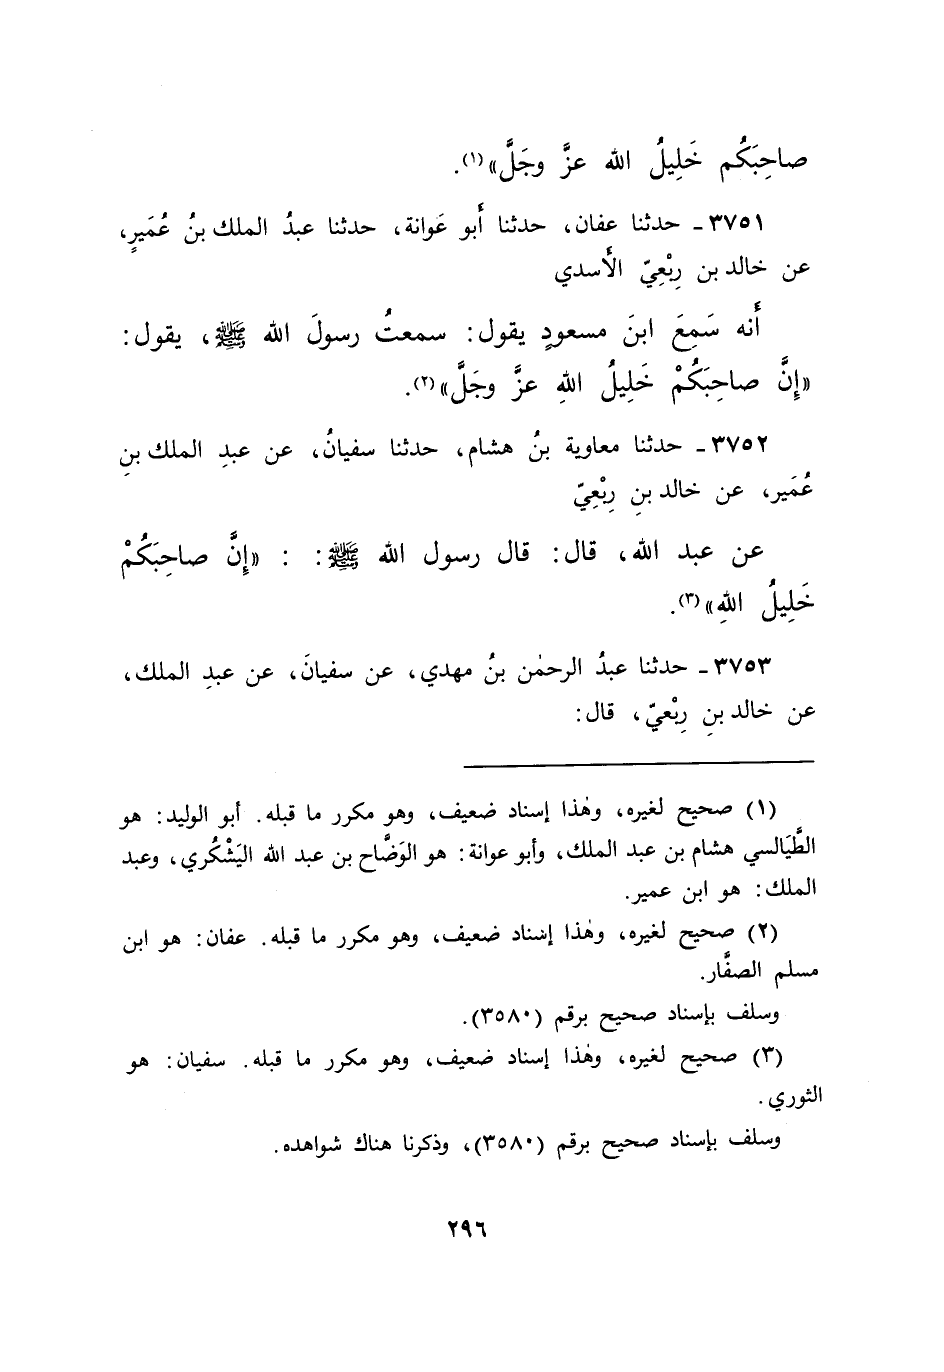 صاحِبَكُم خَلِيلُ الله عزَّ وجَلَّ»(١).
٣٧٥١ ـ حدثنا عفان، حدثنا أَبو عَوانة، حدثنا عبدُ الملك بنُ عُمَيرٍ،
عن خالد بن رِبْعِيّ الأَسدي
أَنه سَمِعَ ابنَ مسعودٍ يقول: سمعتُ رسولَ الله ﷺ، يقول:
«إِنَّ صاحِبَكُمْ خَلِيلُ اللهِ عزَّ وجَلَّ»(٢).
٣٧٥٢ ـ حدثنا معاوية بنُ هشام، حدثنا سفيانُ، عن عبدِ الملك بنِ
عُمَير، عن خالد بنِ رِبْعِيّ
عن عبد الله، قال: قال رسول الله ﷺ: : «إِنَّ صاحِبَكُمْ
خَلِيلُ اللهِ»(٣).
٣٧٥٣ ـ حدثنا عبدُ الرحمٰن بنُ مهدي، عن سفيانَ، عن عبدِ الملك،
عن خالد بنِ رِبْعيّ، قال:
(١) صحيح لغيره، وهٰذا إسناد ضعيف، وهو مكرر ما قبله. أبو الوليد: هو
الطَّيَالسي هشام بن عبد الملك، وأبو عوانة: هو الوَضَّاح بن عبد الله اليَشْكُري، وعبد
الملك: هو ابن عمير.
(٢) صحيح لغيره، وهٰذا إسناد ضعيف، وهو مكرر ما قبله. عفان: هو ابن
مسلم الصفَّار.
وسلف بإسناد صحيح برقم (٣٥٨٠).
(٣) صحيح لغيره، وهٰذا إسناد ضعيف، وهو مكرر ما قبله. سفيان: هو
الثوري.
وسلف بإسناد صحيح برقم (٣٥٨٠)، وذكرنا هناك شواهده.
٢٩٦